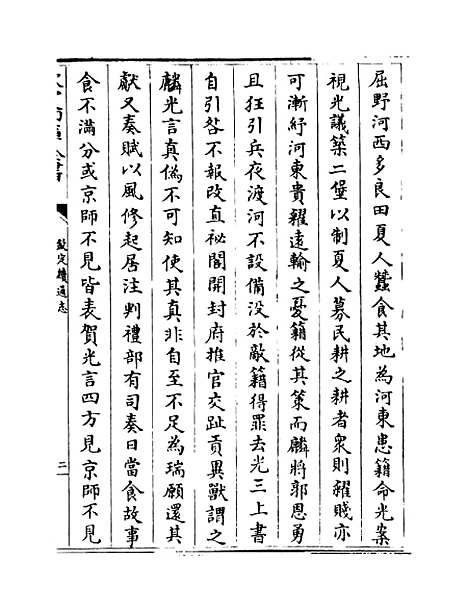 屈野河西多良田夏人蠶食其地為河東患籍命光案
視光議築二堡以制夏人募民耕之耕者衆則糴賤亦
可漸紓河東貴糴逺輸之憂籍從其策而麟將郭恩勇
且狂引兵夜渡河不設備没於敵籍得罪去光三上書
自引咎不報改直祕閣開封府推官交趾貢異獸謂之
麟光言真偽不可知使其真非自至不足為瑞願還其
獻又奏賦以風修起居注判禮部有司奏日當食故事
食不滿分或京師不見皆表賀光言四方見京師不見
欽定續通志
二